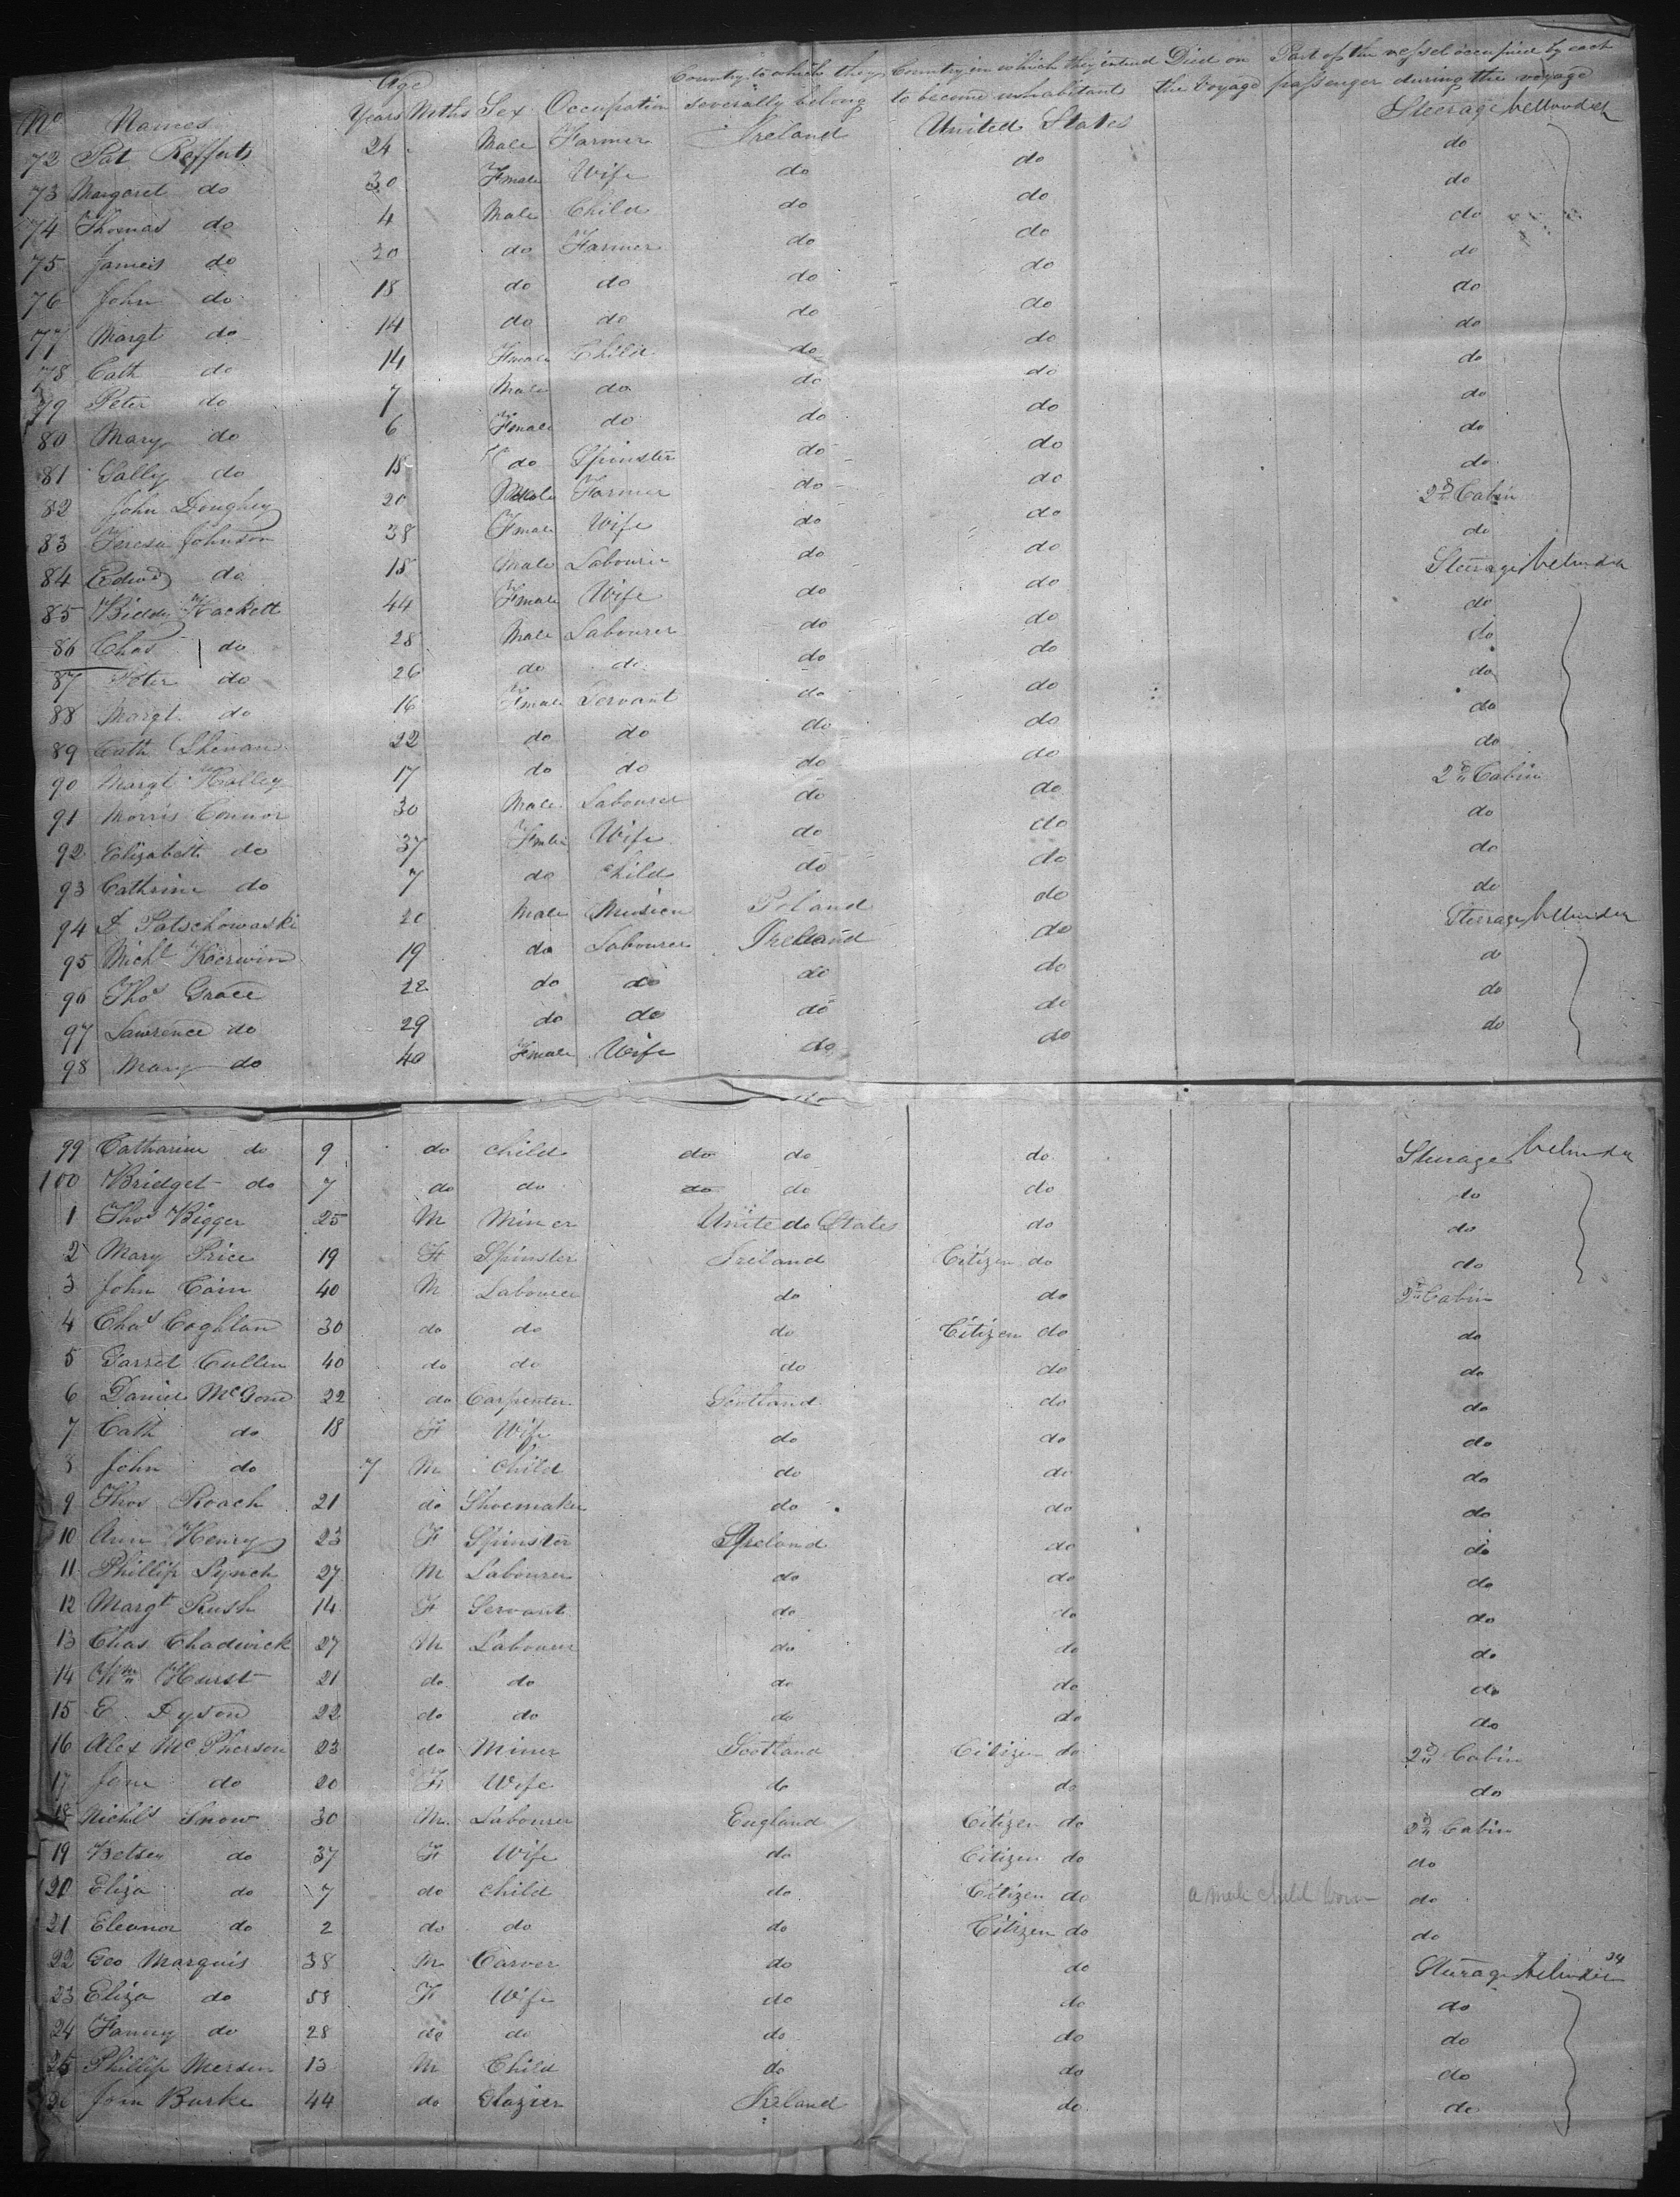 Age Country to which they Country in which they intend Died on Part of the vessel occupied by each
No Names Years Mths Sex Occupation severally belong to become inhabitants the Voyage passenger during the voyage
72 Pat Rafferty 24 Male Farmer Ireland United States Steerage
73 Margaret do 30 Fmale Wife do do do
74 Thomas do 4 Male Child do do do
75 James do 20 do Farmer do do do
76 John do 18 do do do do do
77 Margt do 14 do do do do do
78 Cath do 14 Fmale Child do do do
79 Peter do 7 Male do do do do
80 Mary do 6 Fmale do do do do
81 Sally do 18 do Spinster do do do
82 John 20 Male Farmer do do do
83 Teresa Johnson 38 Fmale Wife do do 2nd Cabin
84 Edwd do 18 Male Labourer do do do
85 Biddy Hackett 44 Fmale Wife do do Steerage
86 Chas do 28 Male Labourer do do do
87 Peter do 26 do do do do do
88 Margt do 16 Fmale Servant do do do
89 Cath 22 do do do do do
90 Margt 17 do do do do do
91 Morris Connor 30 Male Labourer do do 2nd Cabin
92 Elizabeth do 37 Fmle Wife do do do
93 Cathrine do 7 do Child do do do
94 20 Male Poland do do
95 Michl Kerwin 19 do Labourer Ireland do Steerage
96 Thos Grace 22 do do do do do
97 Lawrence do 29 do do do do do
98 Mary do 40 Female Wife do do do
do
99 Catharine do 9 do child do do do Steerage
100 Bridget do 7 do do do do do do
1 Thos Bigger 25 M Miner Unite do States do do
2 Mary Price 19 F Spinster Ireland Citizen do do
3 John Cain 40 M Labourer do do 2nd Cabin
4 Chas Coghlan 30 do do do Citizen do do
5 Garret Cullen 40 do do do do do
6 Daniel 22 do Carpenter Scotland do do
7 Cath do 18 F Wife do do do
8 John do 7 M Child do do do
9 Thos Roach 21 do Shoemaker do do do
10 Ann Henry 23 F Spinster Ireland do do
11 Phillip Lynch 27 M Labourer do do do
12 Margt Rush 14 F Servant do do do
13 Chas Chadwick 27 M Labourer do do do
14 Wm Hurst 21 do do do do do
15 E Dyson 22 do do do do do
16 Alex McPherson 23 do Miner Scotland Citizen do 2nd Cabin
17 Jane do 20 F Wife do do do
18 Nichls Snow 30 M Labourer England Citizen do 2nd Cabin
19 Betsey do 37 F Wife do Citizen do do
20 Eliza do 7 do child do Citizen do a male child born do
21 Eleonor do 2 do do do Citizen do do
22 Geo Marquis 38 M Carver do do Steerage
23 Eliza do 58 F Wife do do do
24 Fanny do 28 do do do do do
25 Phillip 13 M Child do do do
26 John Burke 44 do Glazier Ireland do do